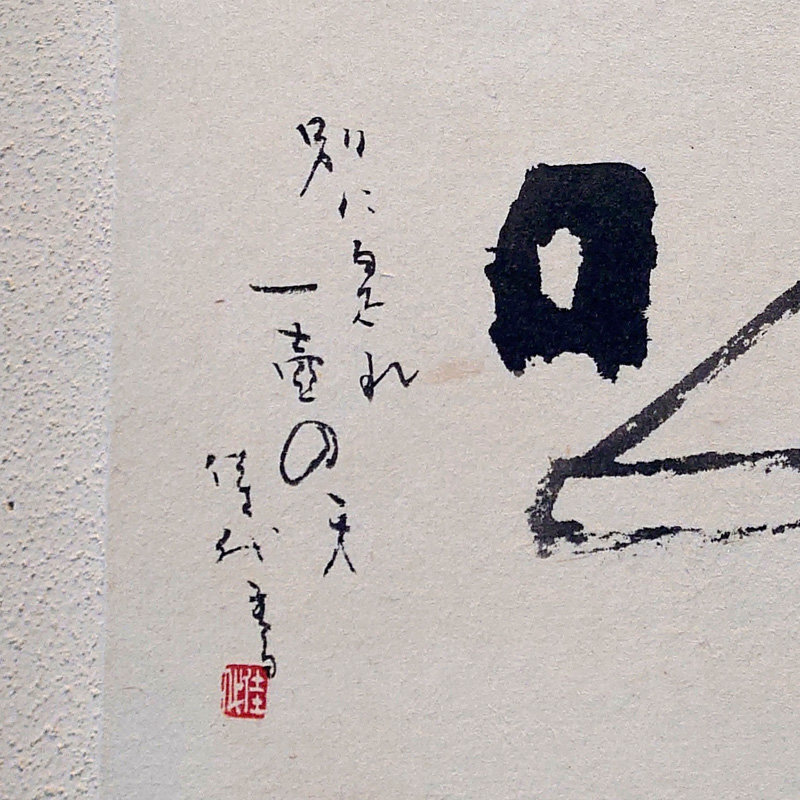 別に是れ
一壺の天
佳代書
佳代